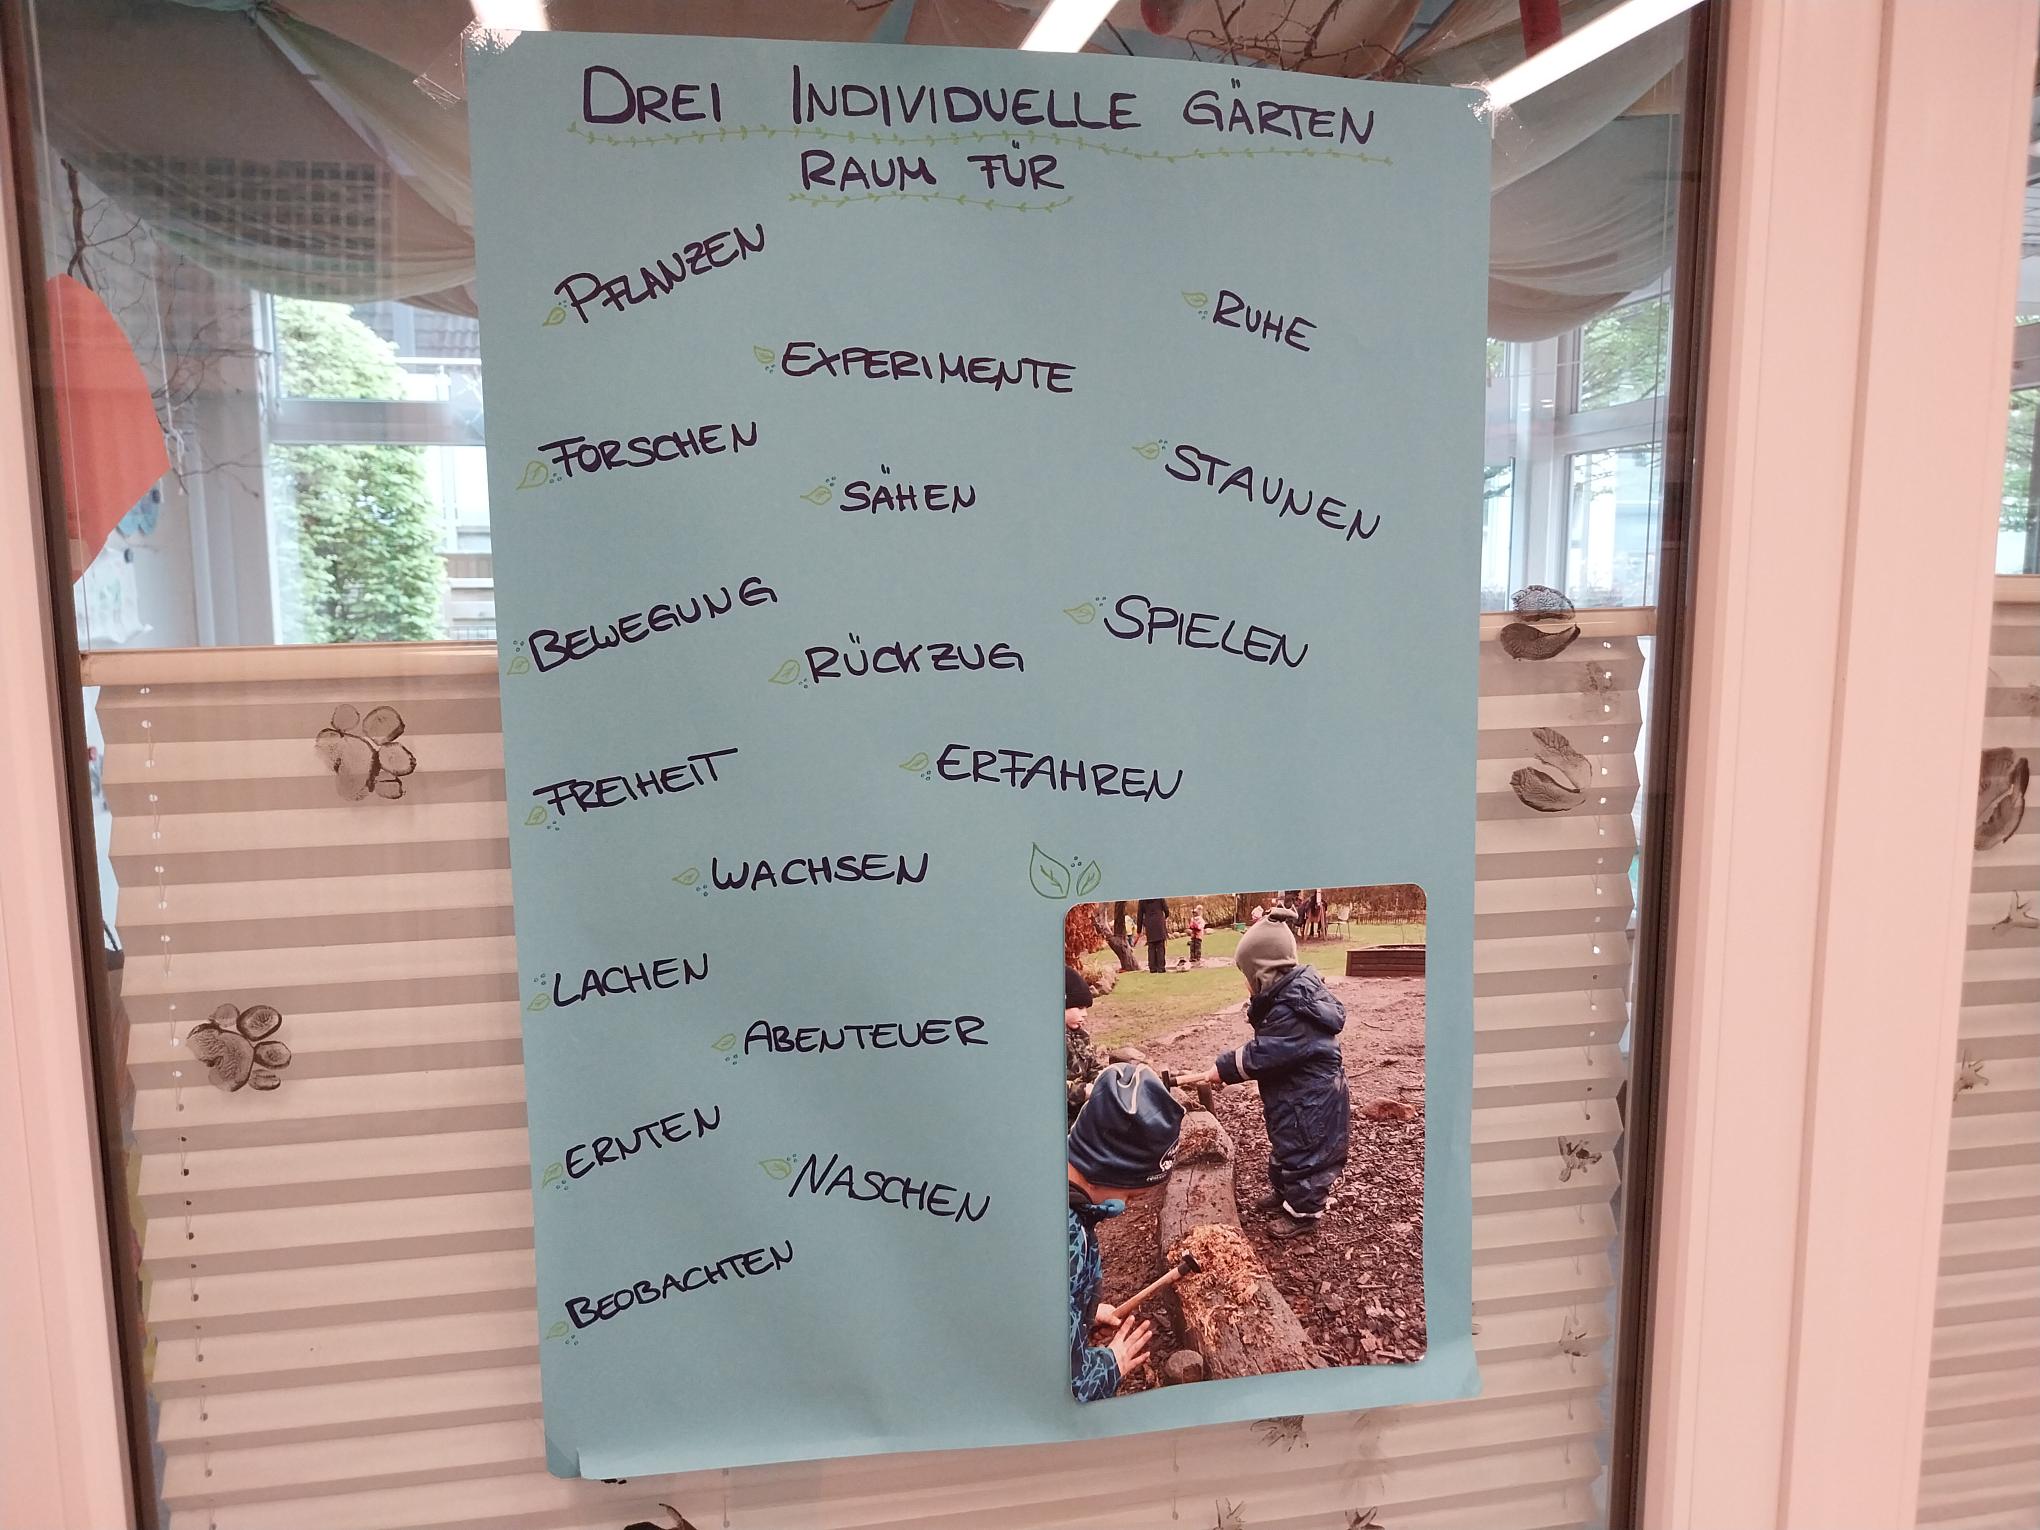 DREI INDIVIDUELLE GÄRTEN
RAUM FÜR
PFLANZEN
RUHE
EXPERIMENTE
FORSCHEN
STAUNEN
SÄHEN
BEWEGUNG
SPIELEN
RÜCKZUG
FREIHEIT
ERFAHREN
WACHSEN
LACHEN
ABENTEUER
ERNTEN
NASCHEN
BEOBACHTEN